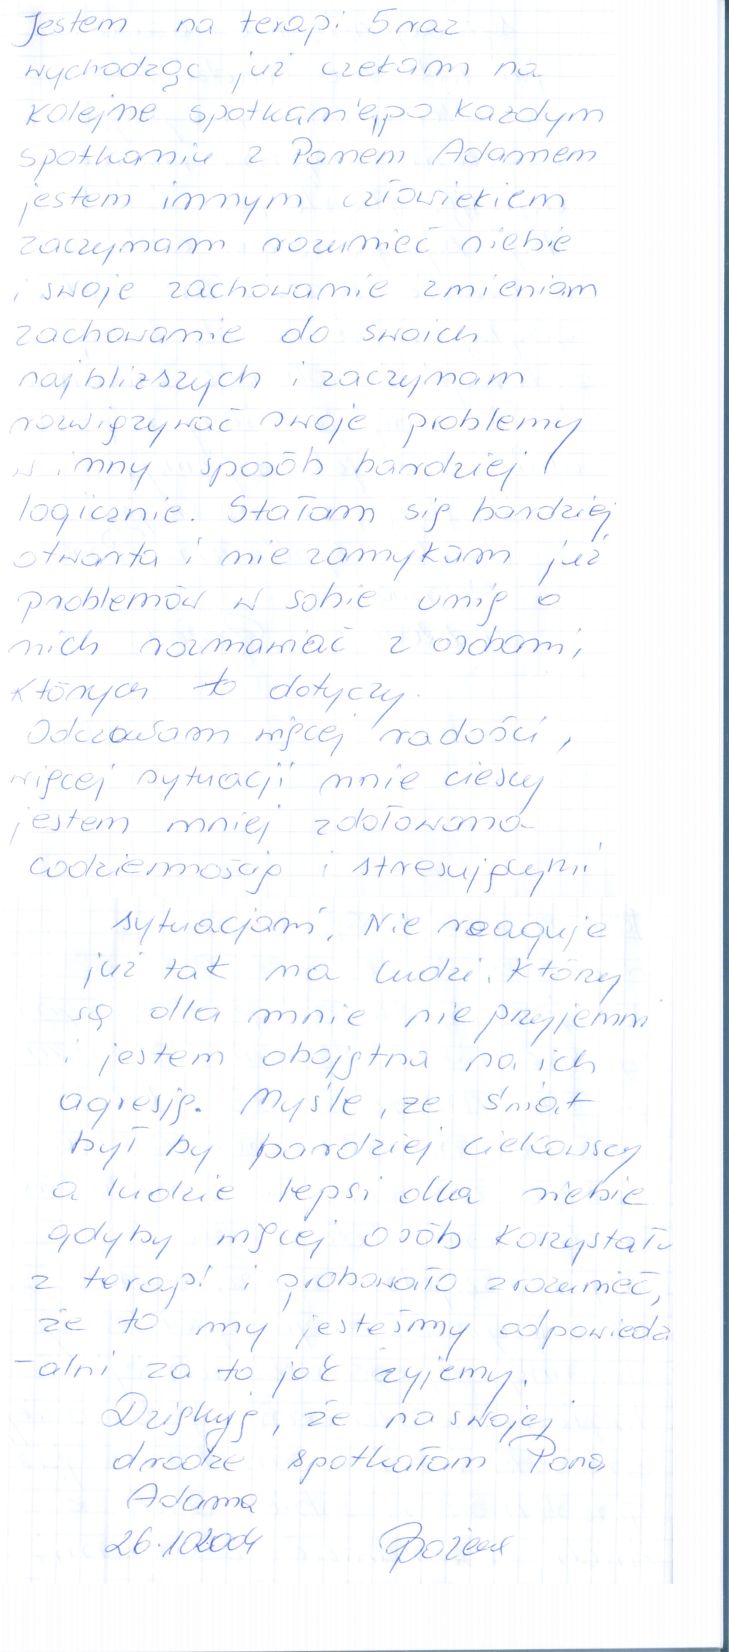 Jestem na terapi 5 raz
wychodząc już czekam na
kolejne spotkanie, po każdym
spotkaniu z Panem Adamem
jestem innym człowiekiem
zaczynam rozumieć siebie
i swoje zachowanie zmieniam
zachowanie do swoich
najbliższych i zaczynam
rozwiązywać swoje problemy
w inny sposób bardziej
logicznie. Stałam się bardziej
otwarta i nie zamykam już
problemów w sobie umię o
nich rozmawiać z osobami,
których to dotyczy.
Odczuwam więcej radości,
więcej sytuacji mnie cieszy
jestem mniej zdołowana
codziennością i stresującymi
sytuacjami. Nie reaguje
już tak na ludzi, którzy
są dla mnie nieprzyjemni
i jestem obojętna na ich
agresję. Myśle, że świat
był by bardziej ciekawszy
a ludzie lepsi dla siebie
gdyby więcej osób korzystało
z terapi i probowało zrozumieć,
że to my jesteśmy odpowiedzi
-alni za to jak żyjemy.
Dziękuję, że na swojej
drodze spotkałam Pana
Adama
26.10.2004 Bożena